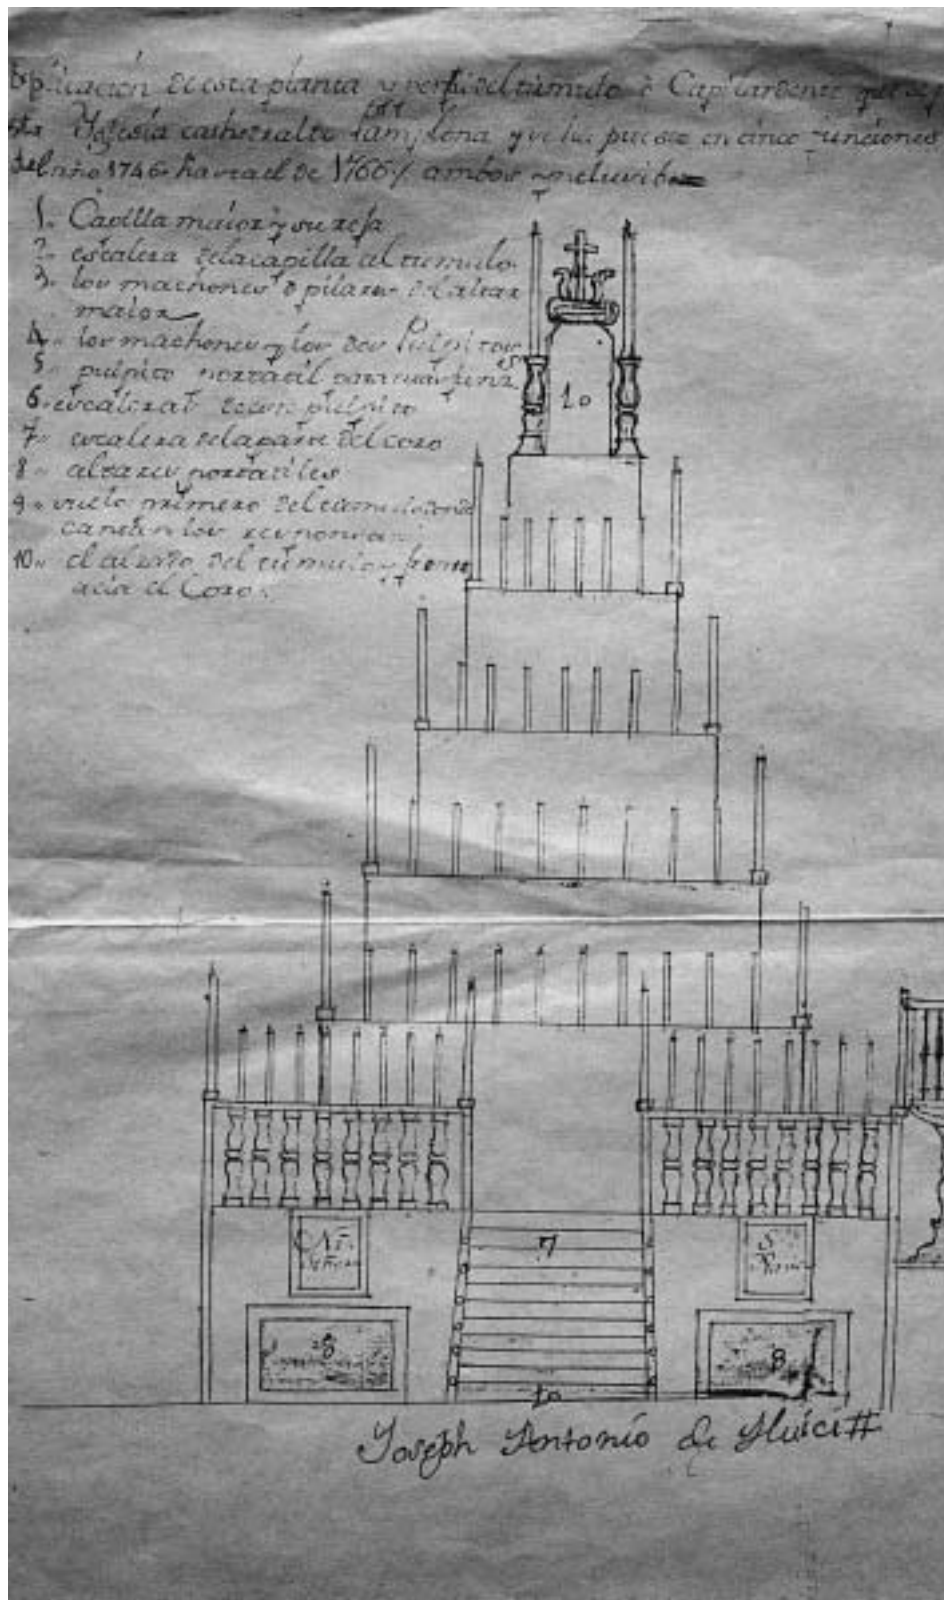 Explicacion de esta planta y perfil del túmulo ó Capilardente que se
sta Yglesia cathedral de Pamplona y se ha puesto en cinco funciones
del año 1746 hasta el de 1766 / ambos inclusibe
1. Capilla maior y su rexa
2. escalera de la capilla al tumulo
3. los machones o pilares del altar
maior
4. los machones y los dos Pulpitos
5. pulpito portatil
6. escalera de este pulpito
7. escalera de la parte del coro
8. altares portatiles
9. suelo primero del tumulo donde
cantan los responsan
10. el alzado del túmulo y frente
acia el Coro.
10
Nr̃a
Señora
7
S
8
8
10
Joseph Antonio de Huici #